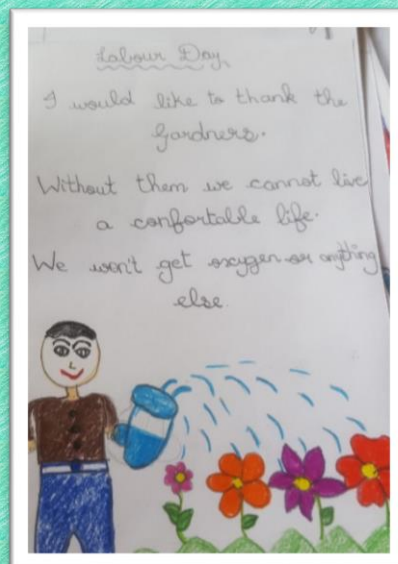 Labour Day
I would like to thank the
Gardners.
Without them we cannot live
a confortable life.
We won't get oxygen or anything
else.